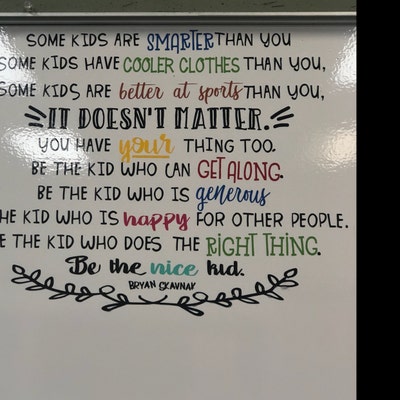 SOME KIDS ARE SMARTER THAN YOU
SOME KIDS HAVE COOLER CLOTHES THAN YOU,
SOME KIDS ARE better at sports THAN YOU,
IT DOESN'T MATTER.
YOU HAVE your THING TOO.
BE THE KID WHO CAN GET ALONG.
BE THE KID WHO IS generous
THE KID WHO IS happy FOR OTHER PEOPLE.
E THE KID WHO DOES THE RIGHT THING.
Be the nice kid.
BRYAN SKAVNAK